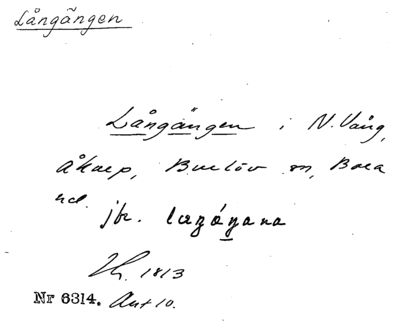 Långängen
Långängen i N. Vång,
Åkarp, Burlöv sn, Bara
hd.
jfr.
1813
Nr 6314. Ant 10.